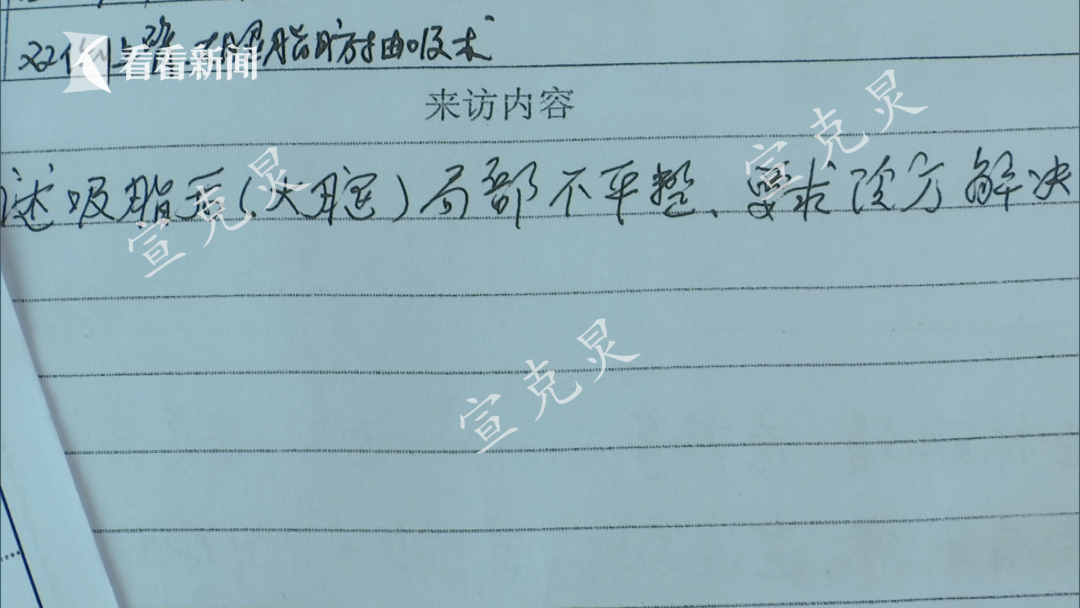 双侧上臂、大腿脂肪抽吸术
看看新闻
来访内容
述吸脂后(大腿)局部不平整、要求院方解决
宣克灵
宣克灵
宣克灵